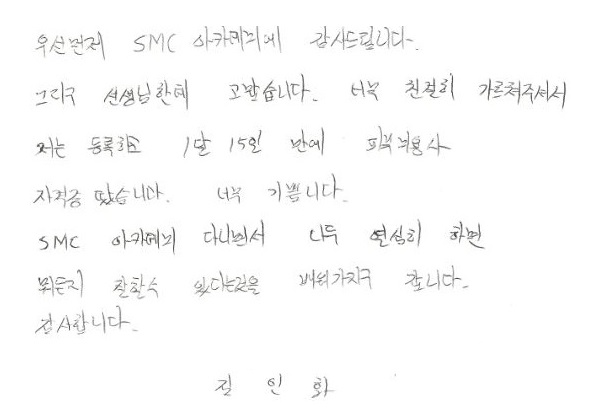 우선먼저 SMC 아카데미에 감사드립니다.
그리구 선생님한테 고맙습니다. 너무 친절히 가르쳐주셔서
저는 등록하고 1달 15일 만에 피부미용사
자격증 땄습니다. 너무 기쁩니다.
SMC 아카데미 다니면서 나두 열심히 하면
뭐든지 잘할수 있다는것을 배워가지구 갑니다.
감사합니다.
김 인 화